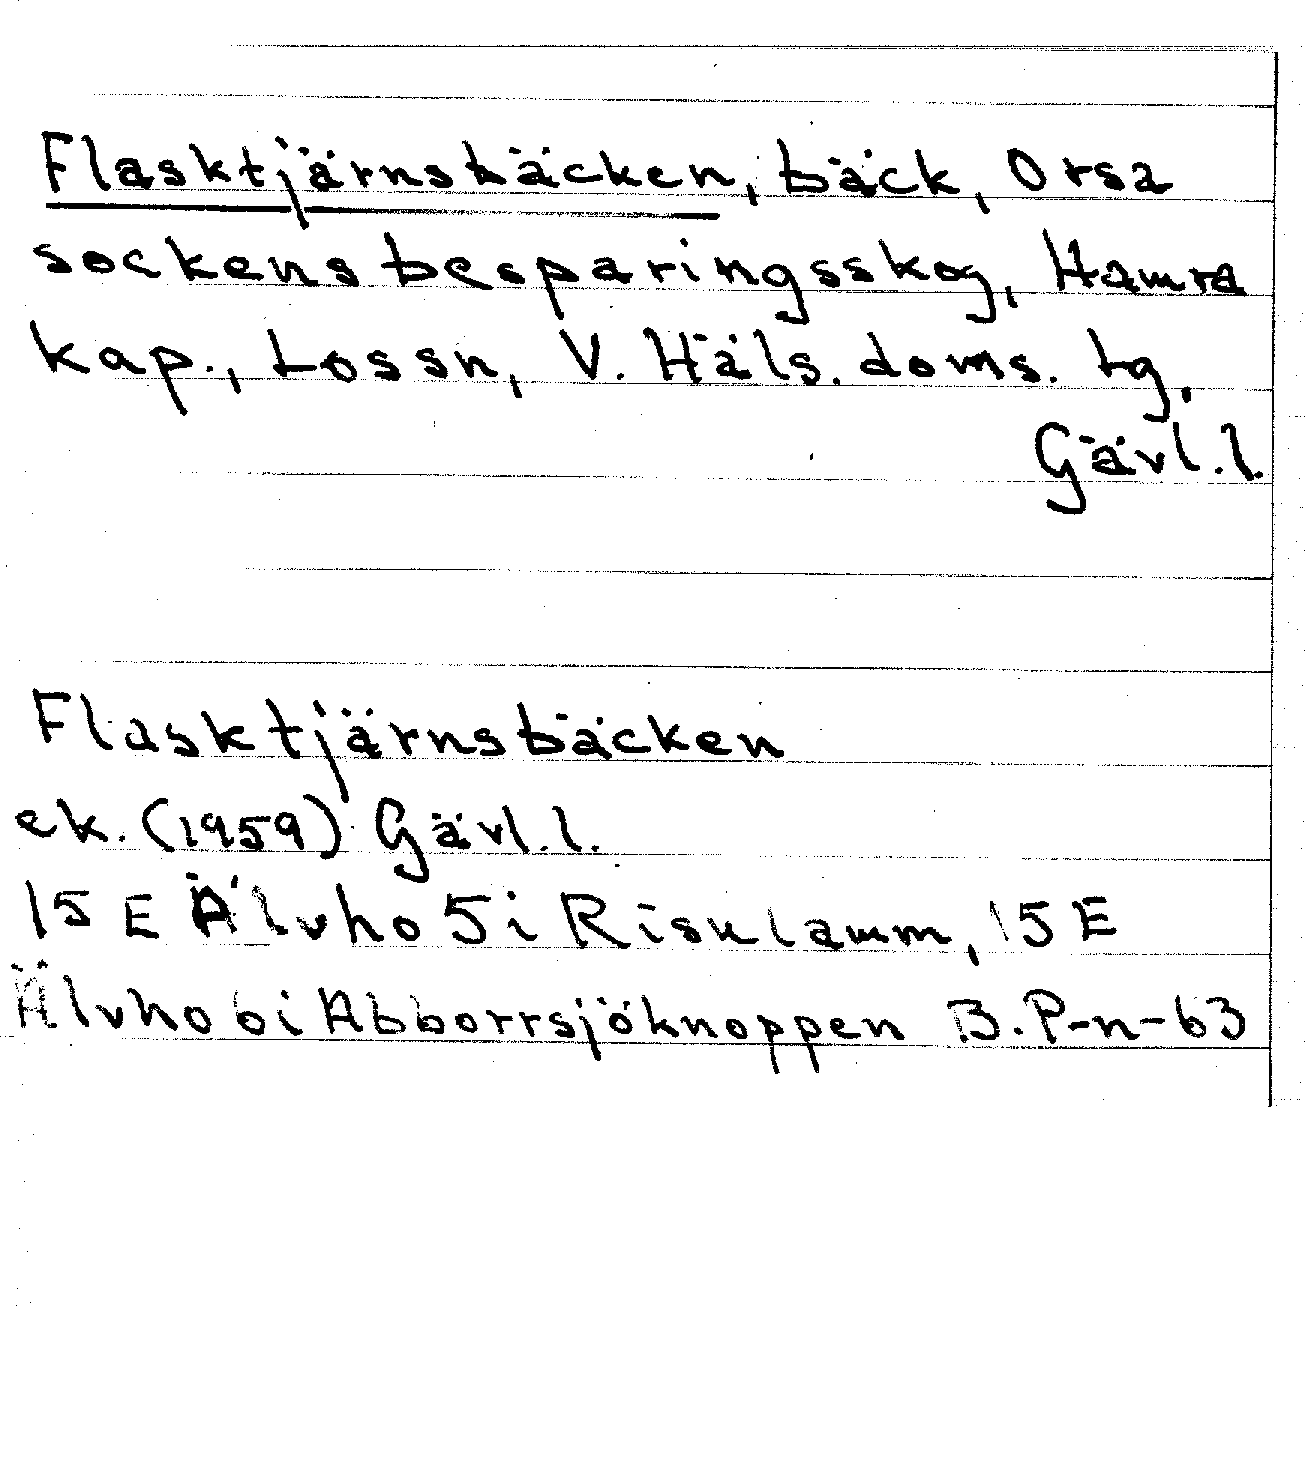 Flasktjärnsbäcken, bäck, Orsa
sockens besparingsskog, Hamra
kap., Lossn, V. Häls. doms. tg,
Gävl.l.
Flasktjärnsbäcken
ek. (1959) Gävl.l.
15 E Älvho 5i Risulamm, 15 E
Älvho 6i Abborrsjöknoppen B.P-n-63